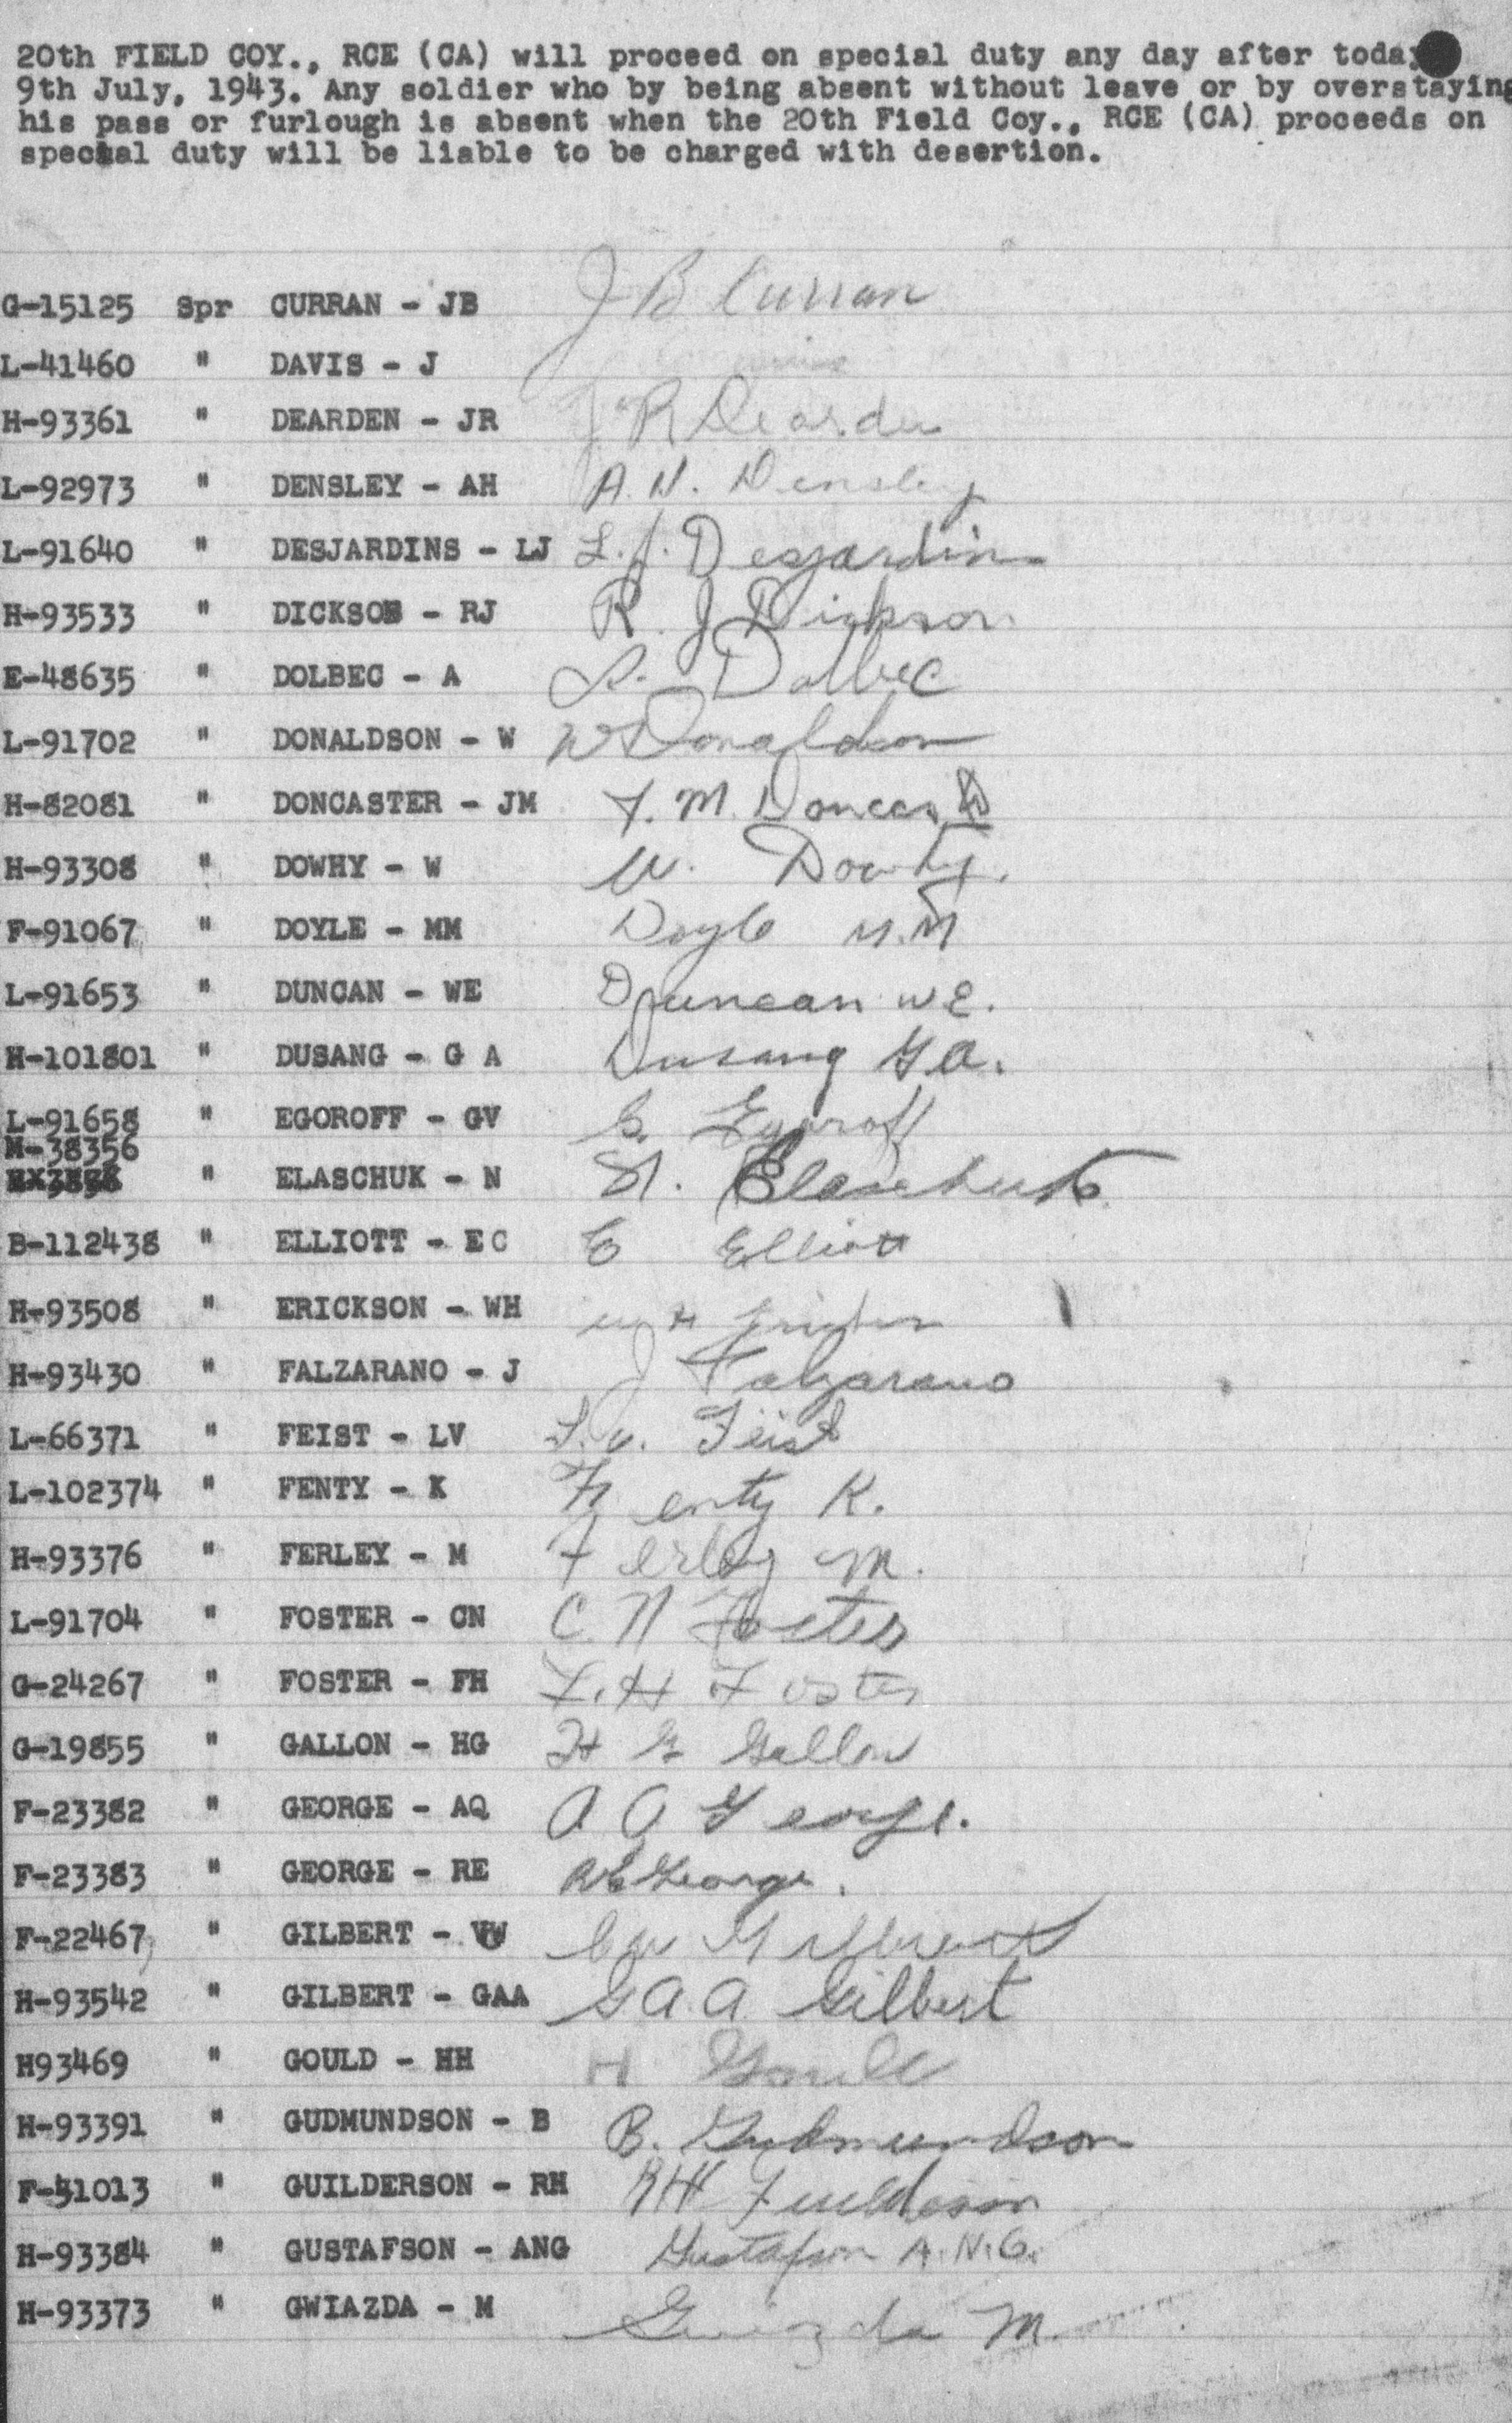 20th FIELD COY., RCE (CA) will proceed on special duty any day after today
9th July, 1943. Any soldier who by being absent without leave or by overstaying
his pass or furlough is absent when the 20th Field Coy., RCE (CA) proceeds on
special duty will be liable to be charged with desertion.
G-15125 Spr CURRAN - JB J B Curran
L-41460 " DAVIS - J
H-93361 " DEARDEN - JR J R Dearden
L-92973 " DENSLEY - AH A. H. Densley
L-91640 " DESJARDINS - LJ L. J. Desjardins
H-93533 " DICKSON - RJ R. J Dickson
E-48635 " DOLBEC - A A. Dolbec
L-91702 " DONALDSON - W W Donaldson
H-82081 " DONCASTER - JM J. M. Doncaster
H-93308 " DOWHY - W W. Dowhy.
F-91067 " DOYLE - MM Doyle M.M
L-91653 " DUNCAN - WE Duncan W E.
H-101801 " DUSANG - G A Dusang G A.
L-91658 " EGOROFF - GV G. Egoroff
M-38356
" ELASCHUK - N N. Elaschuk
B-112438 " ELLIOTT - EC E Elliott
H-93508 " ERICKSON - WH W H
H-93430 " FALZARANO - J J Falzarano
L-66371 " FEIST - LV L. V. Feist
L-102374 " FENTY - K Fenty K.
H-93376 " FERLEY - M Ferley M.
L-91704 " FOSTER - CN C N Foster
G-24267 " FOSTER - FH F. H Foster
G-19855 " GALLON - HG H G Gallon
F-23382 " GEORGE - AQ A Q George.
F-23383 " GEORGE - RE R E George.
F-22467 " GILBERT - VW Gilbert
H-93542 " GILBERT - GAA G A. A. Gilbert
H93469 " GOULD - HH H Gould
H-93391 " GUDMUNDSON - B B. Gudmundson
F-51013 " GUILDERSON - RH R H Guilderson
H-93384 " GUSTAFSON - ANG Gustafson A. N. G.
H-93373 " GWIAZDA - M Gwiazda M.